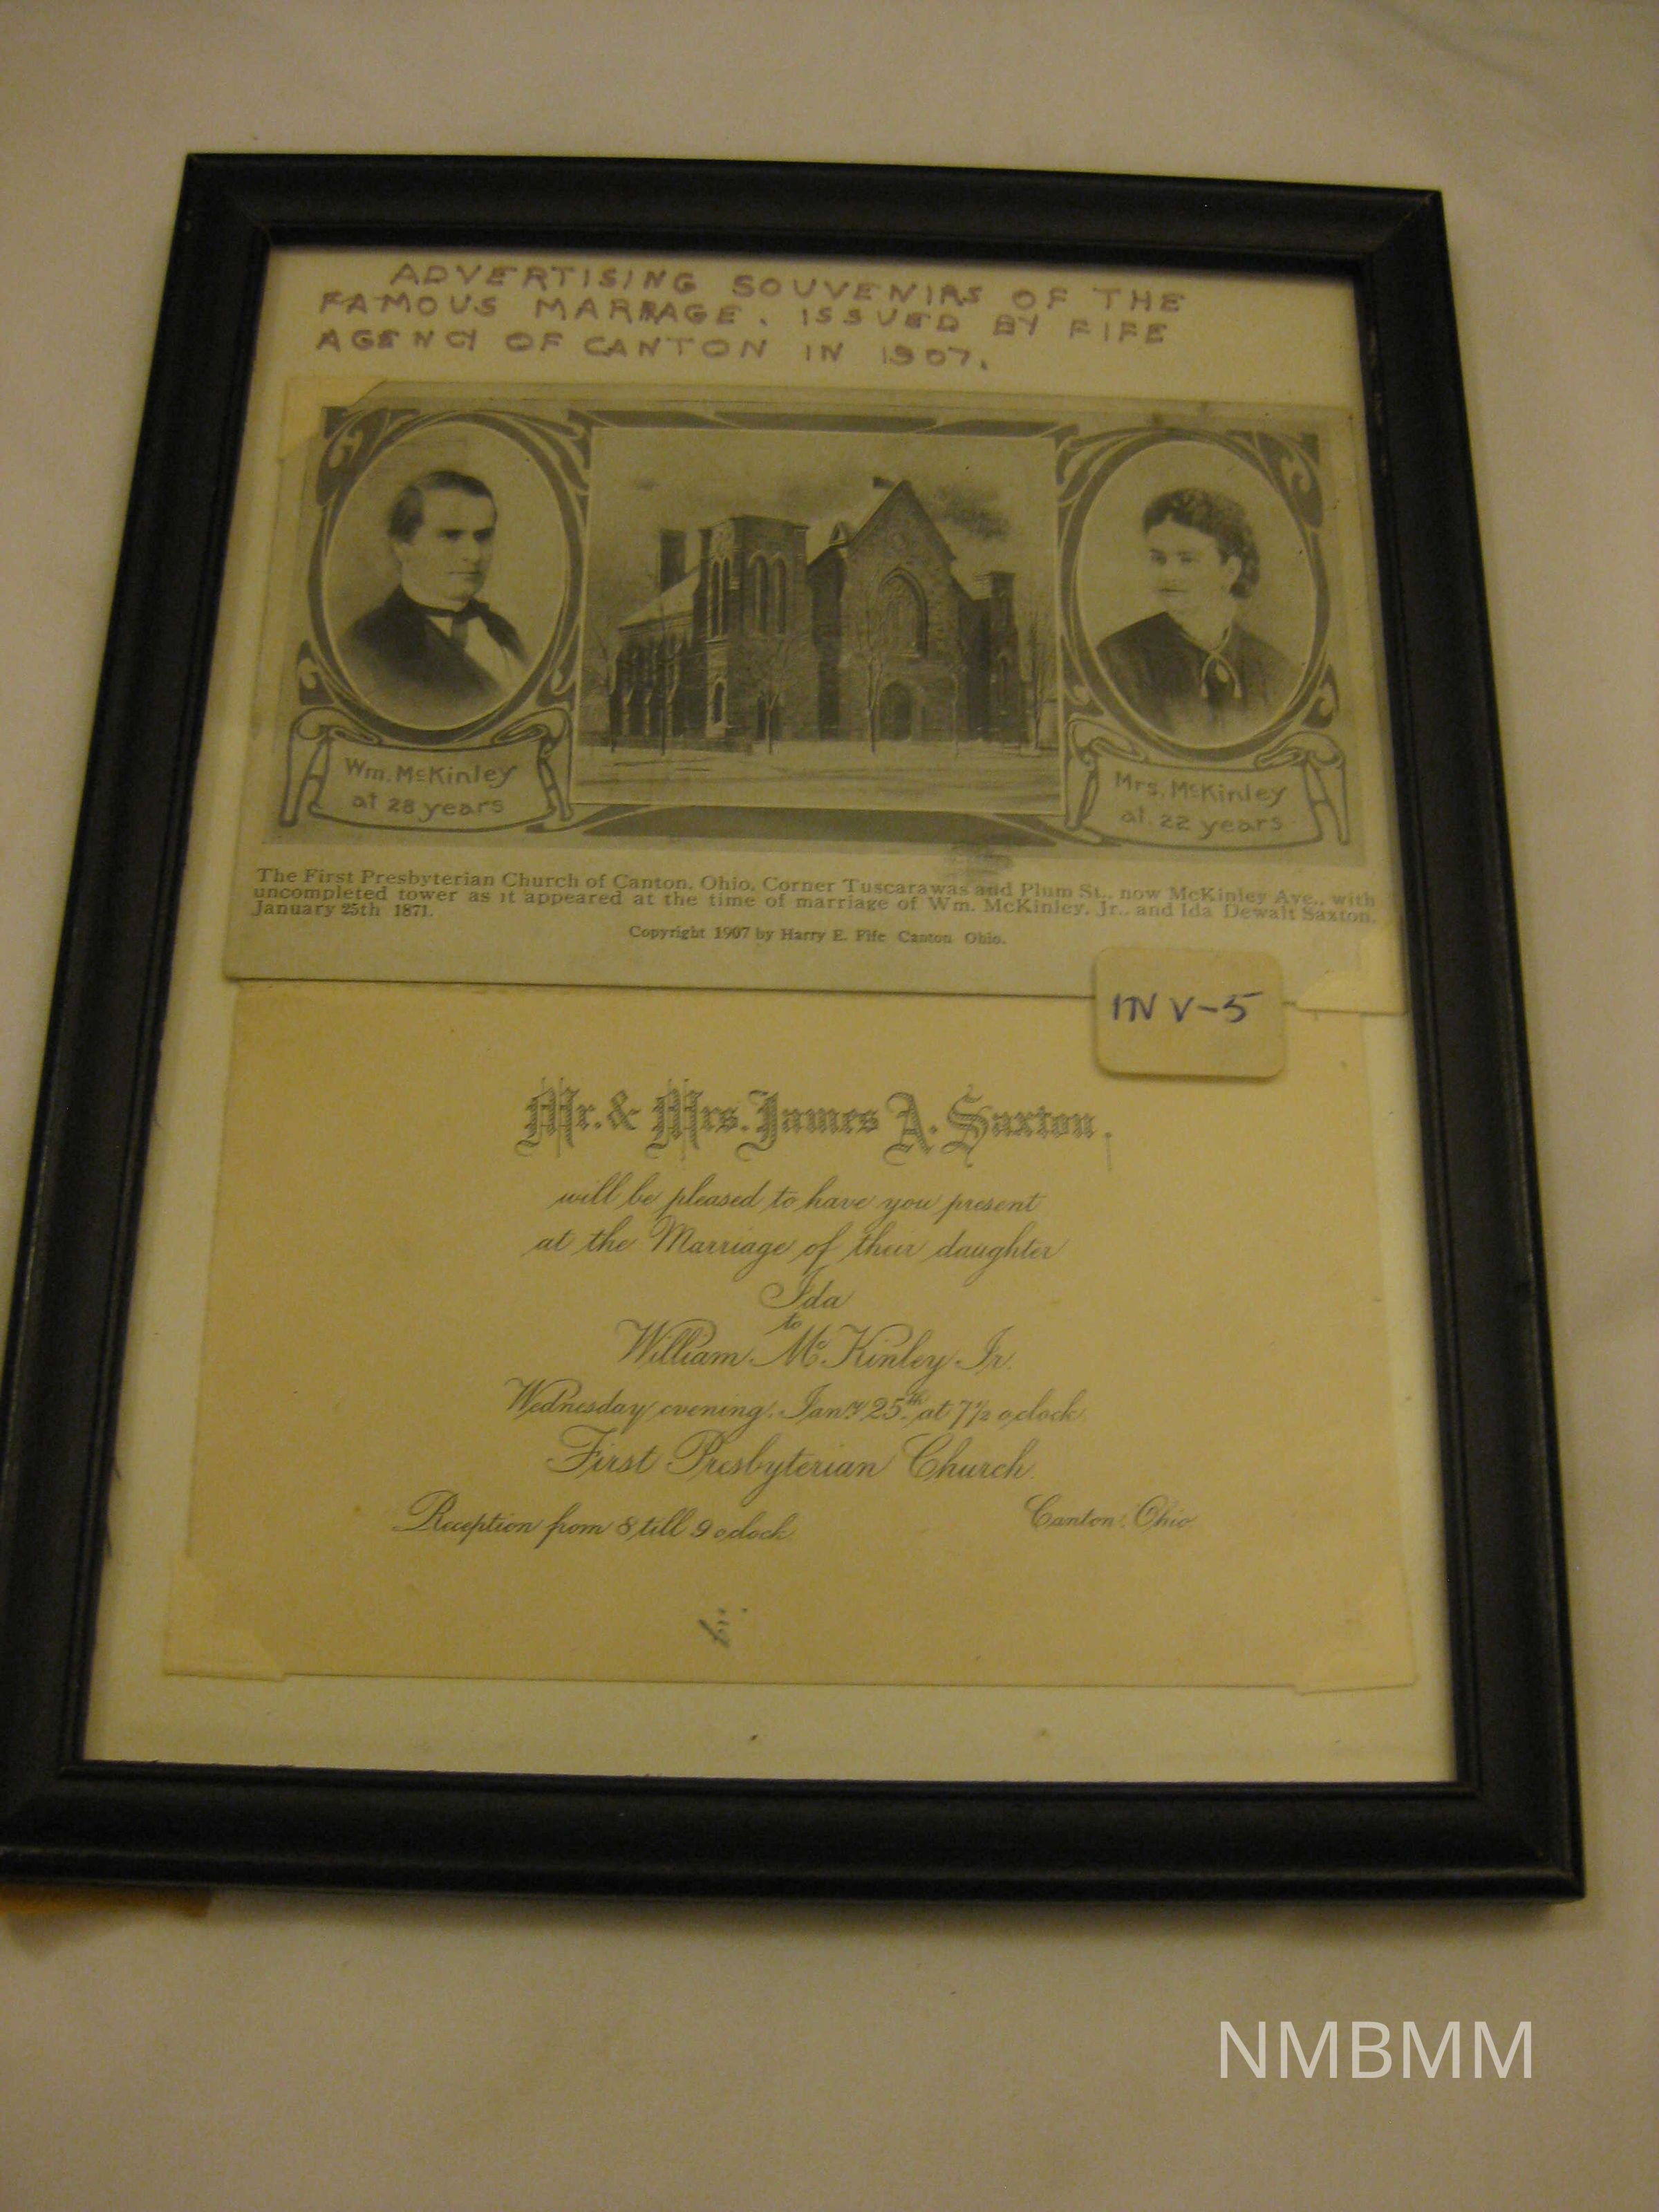 ADVERTISING SOUVENIRS OF THE
FAMOUS MARRAGE. ISSUED BY FIFE
AGENCY OF CANTON IN 1907.
Wm. McKinley
at 28 years
Mrs. McKinley
at 22 years
The First Presbyterian Church of Canton, Ohio, Corner Tuscarawas and Plum St., now McKinley Ave., with
uncompleted tower as it appeared at the time of marriage of Wm. McKinley, Jr., and Ida Dewalt Saxton,
January 25th 1871.
Copyright 1907 by Harry E. Fife Canton Ohio.
INV-5
Mr. & Mrs. James A. Saxton,
will be pleased to have you present
at the Marriage of their daughter
Ida
to
William McKinley Jr.
Wednesday evening, Jany 25th at 7½ o,clock.
First Presbyterian Church.
Reception from 8 till 9 oclock.
Canton, Ohio
NMBMM